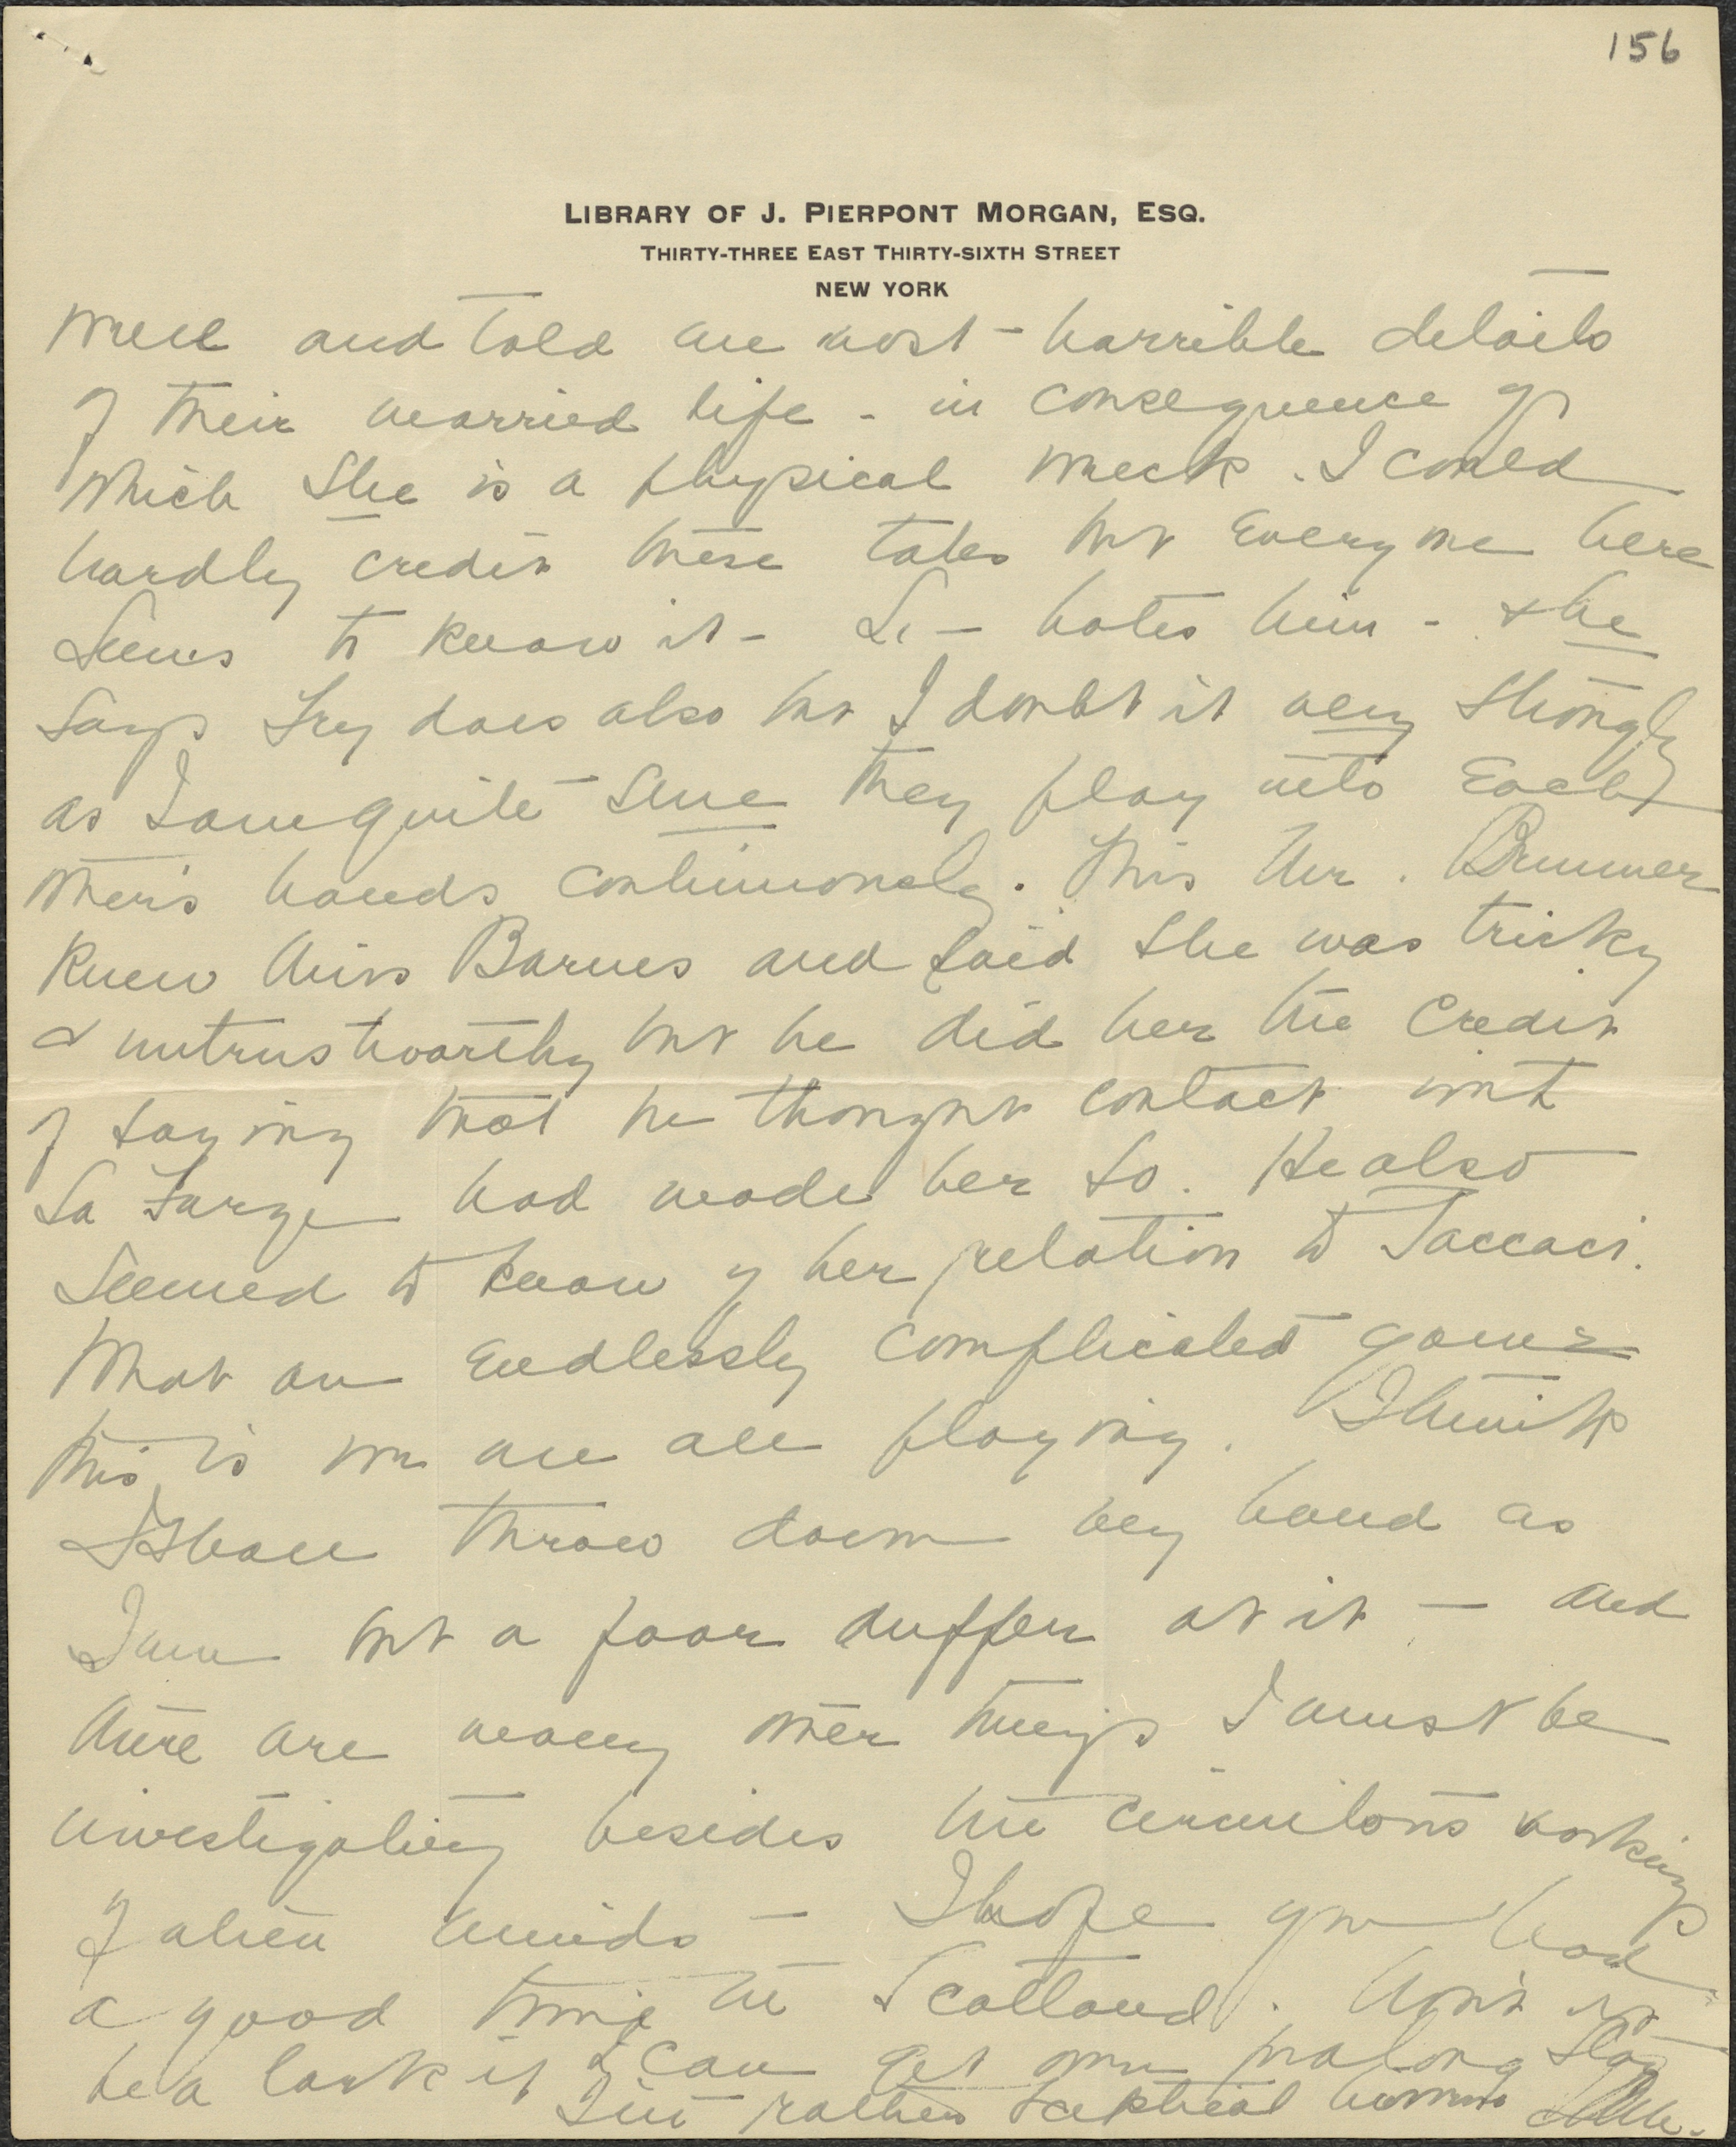 156
LIBRARY OF J. PIERPONT MORGAN, ESQ.
THIRTY-THREE EAST THIRTY-SIXTH STREET
NEW YORK
well and told me most - horrible details
of their married life - in consequence of
which she is a physical wreck. I could
hardly credit these tales but everyone here
seems to know it - L - hates him - & he
says Fry does also but I doubt it very strongly
as I am quite sure they play into each
other's hands continuously. This Mr. Brunner
knew Miss Barnes and said she was tricky
& untrustworthy but he did her the credit
of saying that he thought contact with
La Farge had made her so. He also
seemed to know of her relation to Jaccaci.
What an endlessly complicated game
this is we are all playing. I think
I shall throw down my hand as
I am but a poor duffer at it — and
there are many other things I must be
investigating besides the circuitous workings
of alien minds — I hope you had
a good time in Scotland. Won't it
be a lark if I can get over
I'm rather sceptical